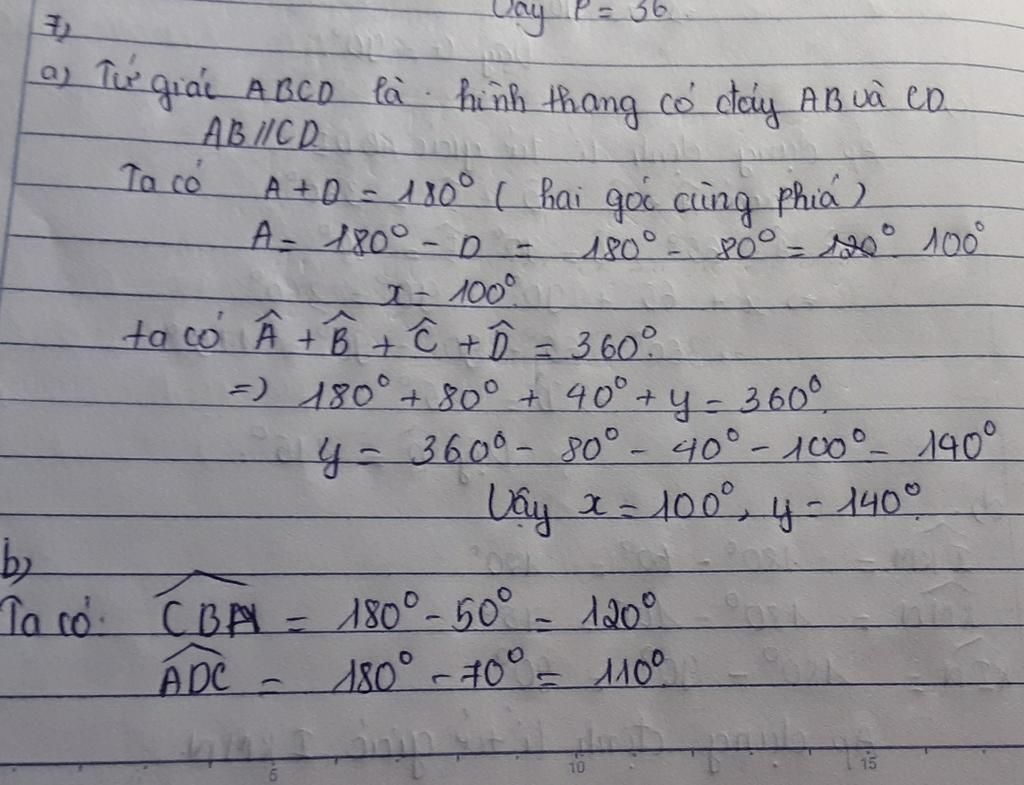 Vậy P = 36.
7)
a) Tứ giác ABCD là hình thang có đáy AB và CD
AB//CD
Ta có A + D = 180° ( hai góc cùng phiá )
A = 180° - D = 180° - 80° = 120° 100°
x = 100°.
ta có Â + B̂ + Ĉ + D̂ = 360°.
=> 180° + 80° + 40° + y = 360°.
y = 360° - 80° - 40° - 100° - 140°
Vậy x = 100°, y = 140°.
b)
Ta có. CBA = 180° - 50° = 120°
ADC = 180° - 70° = 110°.
5 10 15